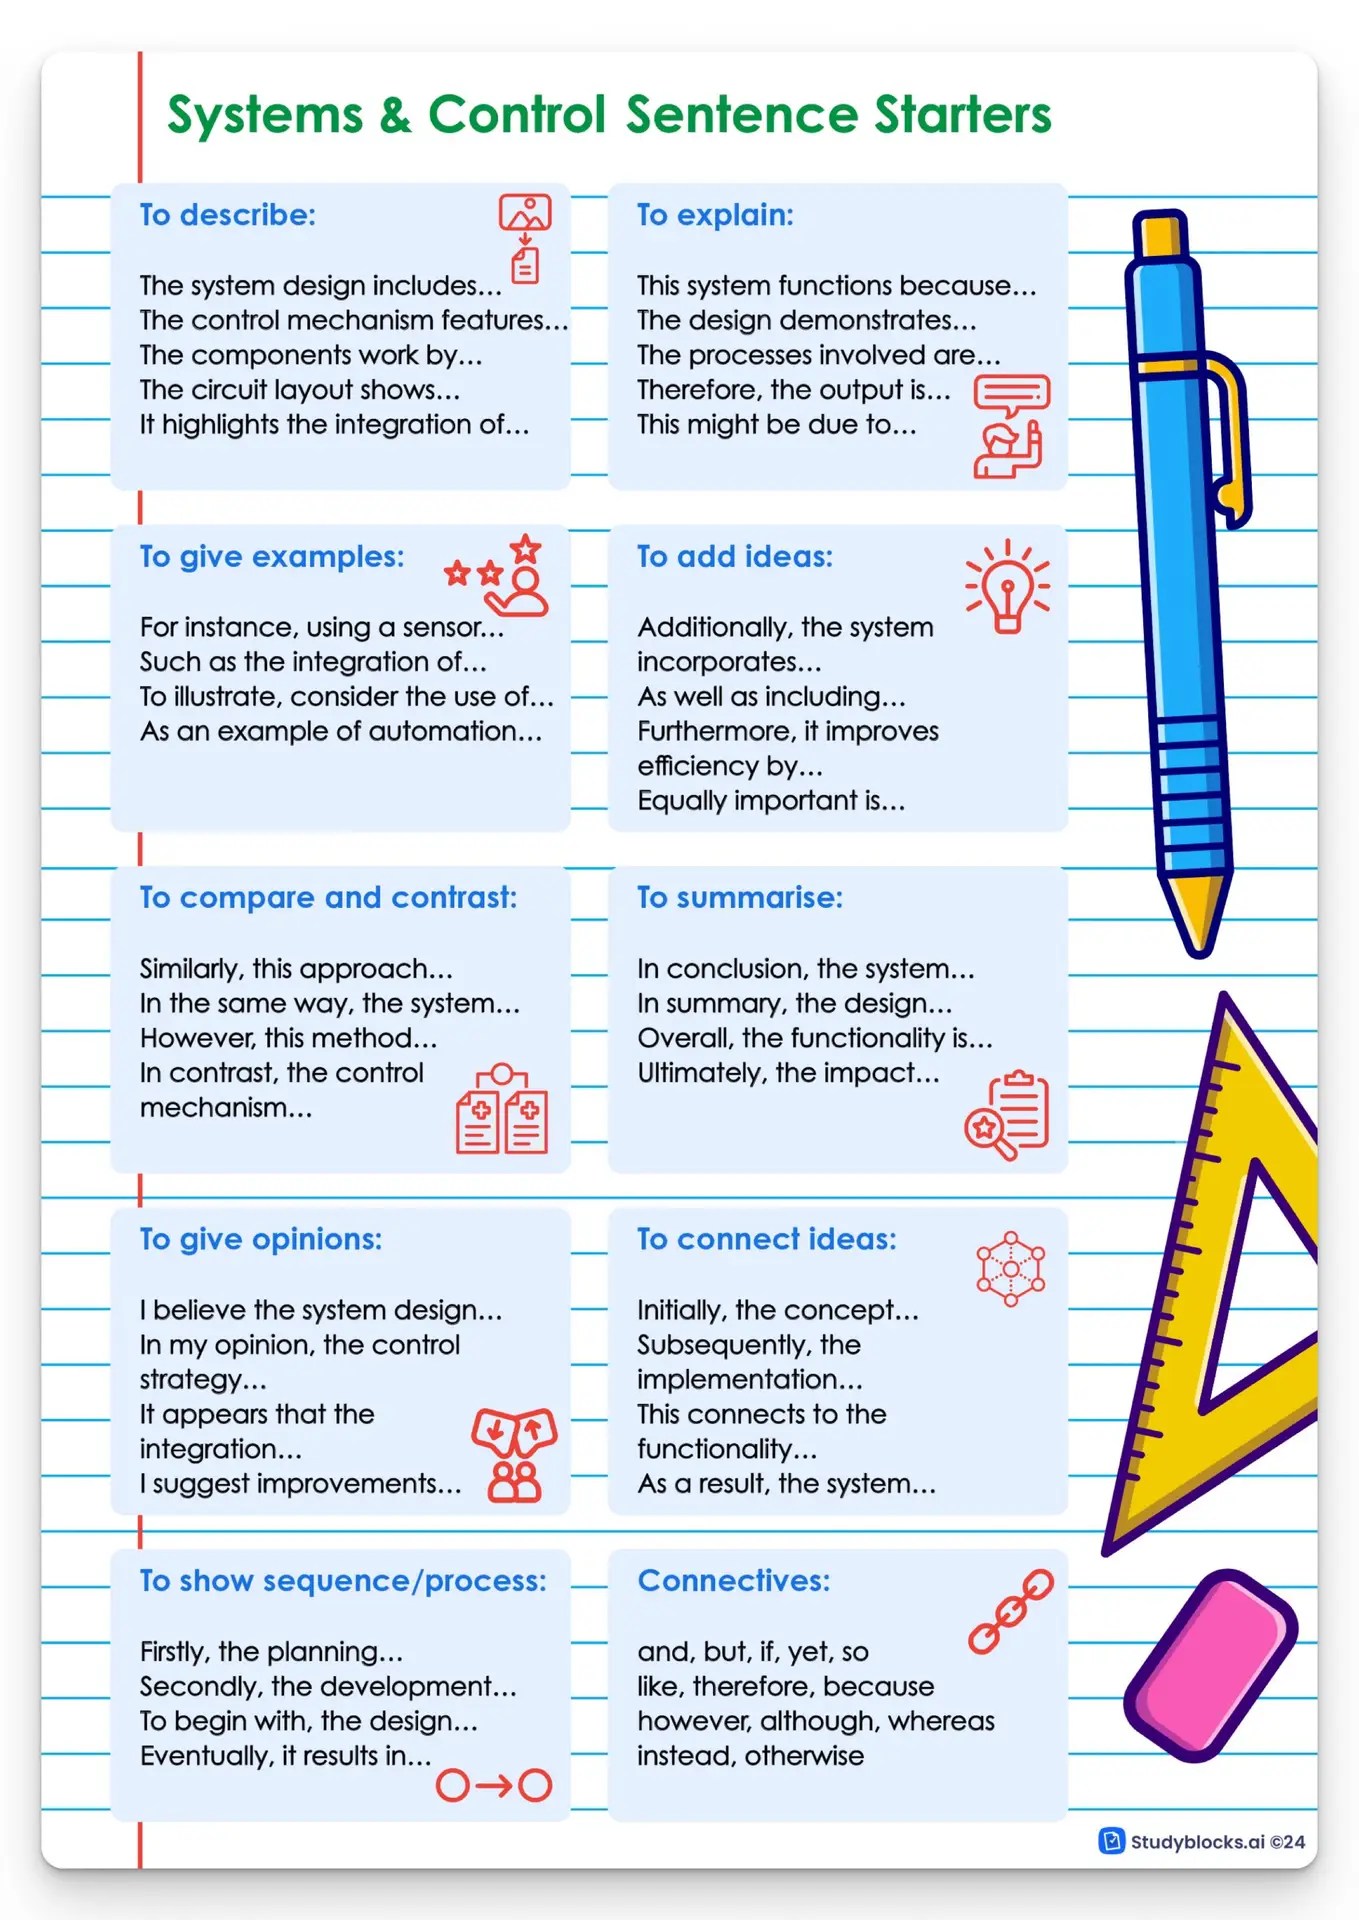 Systems & Control Sentence Starters
To describe:
The system design includes...
The control mechanism features...
The components work by...
The circuit layout shows...
It highlights the integration of...
To explain:
This system functions because...
The design demonstrates...
The processes involved are...
Therefore, the output is...
This might be due to...
To give examples:
For instance, using a sensor...
Such as the integration of...
To illustrate, consider the use of...
As an example of automation...
To add ideas:
Additionally, the system
incorporates...
As well as including...
Furthermore, it improves
efficiency by...
Equally important is...
To compare and contrast:
Similarly, this approach...
In the same way, the system...
However, this method...
In contrast, the control
mechanism...
To summarise:
In conclusion, the system...
In summary, the design...
Overall, the functionality is...
Ultimately, the impact...
To give opinions:
I believe the system design...
In my opinion, the control
strategy...
It appears that the
integration...
I suggest improvements...
To connect ideas:
Initially, the concept...
Subsequently, the
implementation...
This connects to the
functionality...
As a result, the system...
To show sequence/process:
Firstly, the planning...
Secondly, the development...
To begin with, the design...
Eventually, it results in...
Connectives:
and, but, if, yet, so
like, therefore, because
however, although, whereas
instead, otherwise
Studyblocks.ai ©24